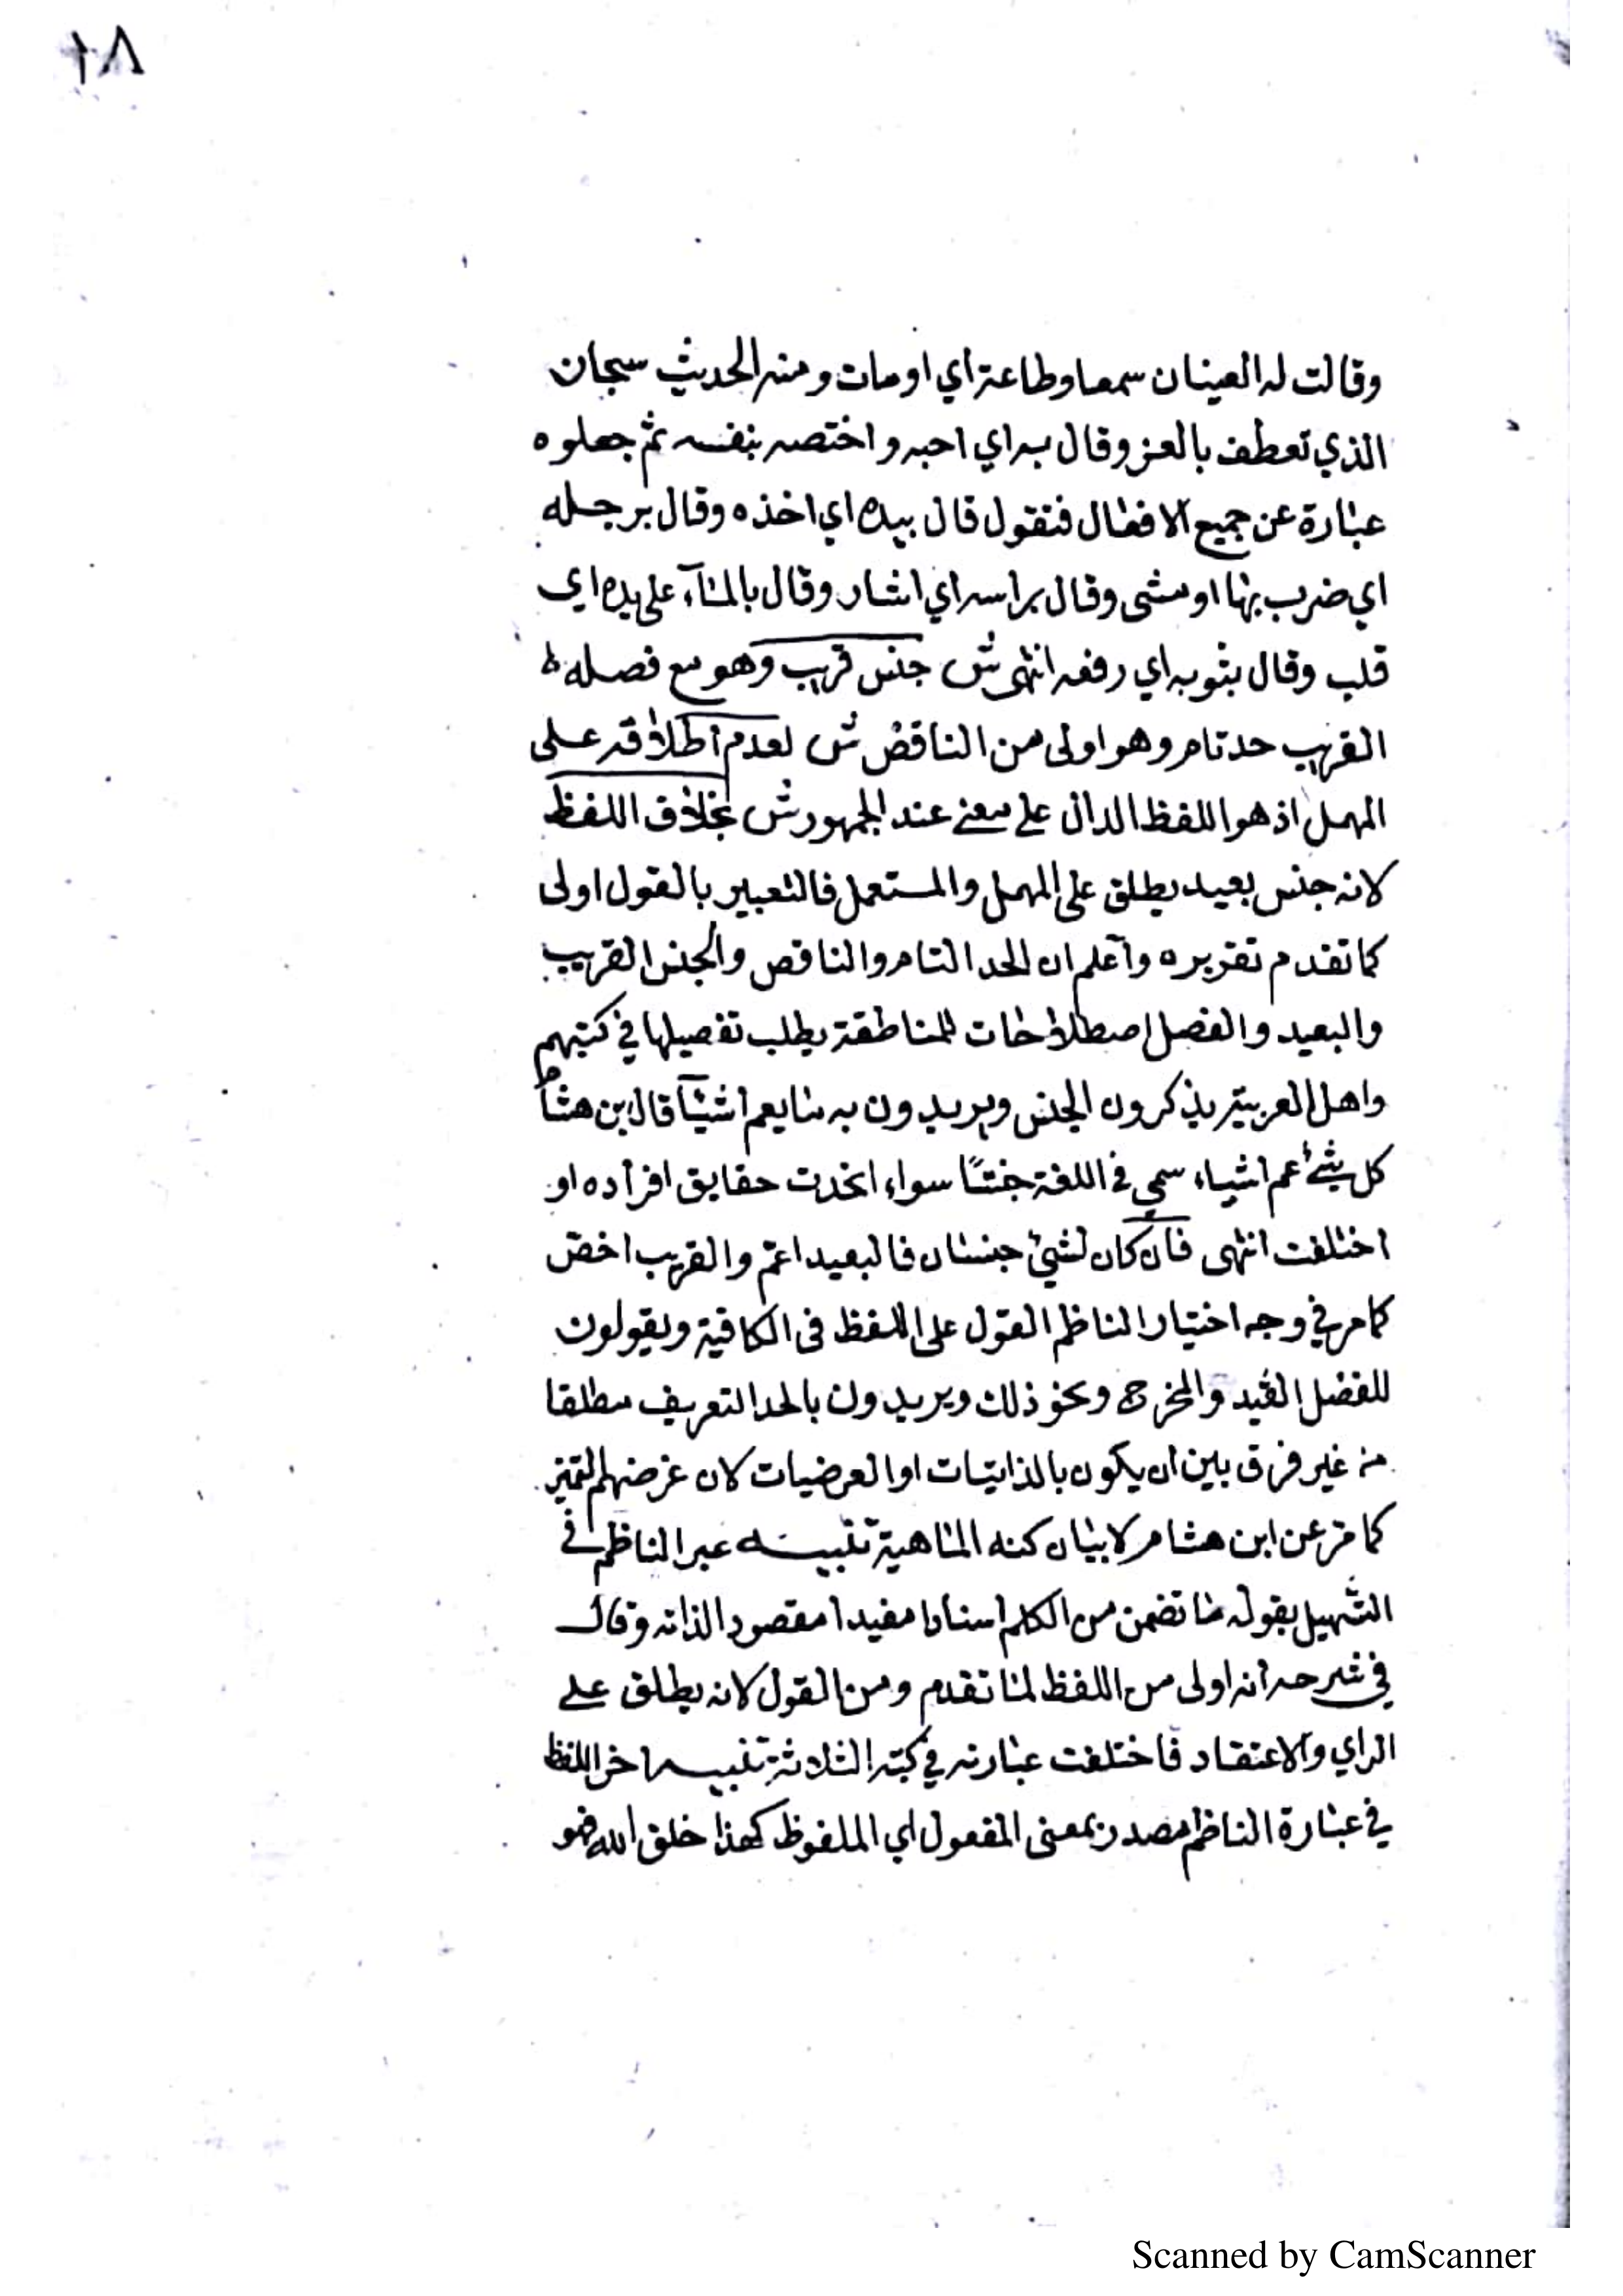 ٢٨
وقالت له العينان سمعا وطاعة اي اومات ومنه الحديث سبحان
الذي تعطف بالعز وقال به اي احبه واختصه بنفسه ثم جعلوه
عبارة عن جميع الافعال فتقول قال بيده اي اخذه وقال برجله
اي ضرب بها او مشى وقال براسه اي اشار وقال بالمآء على يده اي
قلب وقال بثوبه اي رفعه انتهى ش جنس قريب وهو مع فصله
القريب حد تام وهو اولى من الناقص ش لعدم اطلاقه على
المهمل اذ هو اللفظ الدال على معنى عند الجمهور ش بخلاف اللفظ
لانه جنس بعيد يطلق على المهمل والمستعمل فالتعبير بالقول اولى
كما تقدم تقريره وآعلم ان الحد التام والناقص والجنس القريب
والبعيد والفصل اصطلاحات للمناطقة يطلب تفصيلها في كتبهم
واهل العربية يذكرون الجنس ويريدون به ما يعم اشيآ قال بن هشام
كل شئ عم اشياء سمي في اللغة جنسًا سواء اتحدت حقايق افراده او
اختلفت انتهى فان كان لشئ جنسان فالبعيد اعمّ والقريب اخصّ
كما مر في وجه اختيار الناظم القول على اللفظ فى الكافية ويقولون
للفصل القيد والمخرج ونحو ذلك ويريدون بالحد التعريف مطلقا
من غير فرق بين ان يكون بالذاتيات او العرضيات لان غرضهم التميز
كما مرّ عن ابن هشام لا بيان كنه الماهية تنبيه عبر الناظم في
التسهيل بقوله ما تضمن من الكلم اسنادا مفيدا مقصودا لذاته وقال
في شرحه انه اولى من اللفظ لما تقدم ومن القول لانه يطلق على
الراي والاعتقاد فاختلفت عبارته في كتبه الثلاثة تنبيه اخر اللفظ
في عبارة الناظم مصدر بمعنى المفعول اي الملفوظ كهذا خلق الله فهو
Scanned by CamScanner